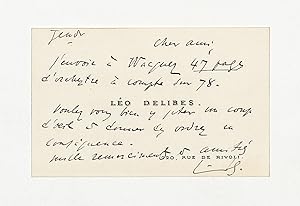 Jeudi
cher ami
j'envoie à Wacquez 47 pages
d'orchestre à compte sur 78.
LÉO DELIBES.
Voulez vous bien y jeter un coup
d'œil & donner des ordres en
conséquence.
20, RUE DE RIVOLI.
mille remerciements & amitiés